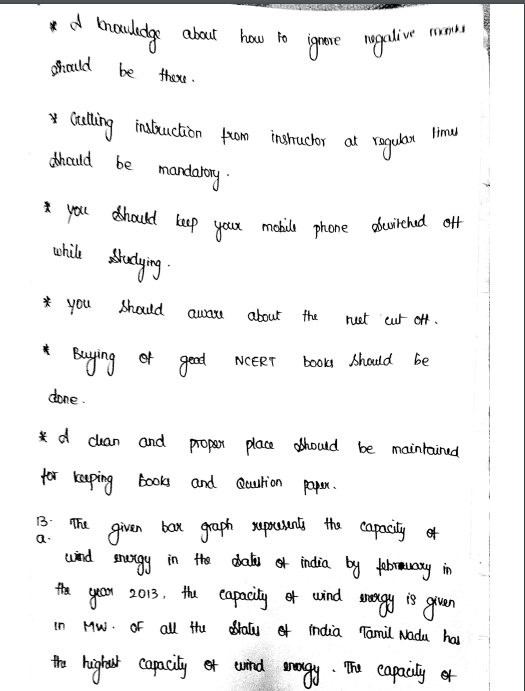 * A knowledge about how to ignore negative marks
should be there.
* Getting instruction from instructor at regular times
should be mandatory.
* you should keep your mobile phone switched off
while studying.
* you should aware about the neet cut off.
* Buying of good NCERT books should be
done.
* A clean and proper place should be maintained
for keeping Books and Question paper.
13. The given bar graph represents the capacity of
a. wind energy in the states of india by february in
the year 2013, the capacity of wind energy is given
in MW. OF all the States of india Tamil Nadu has
the highest capacity of wind energy. The capacity of